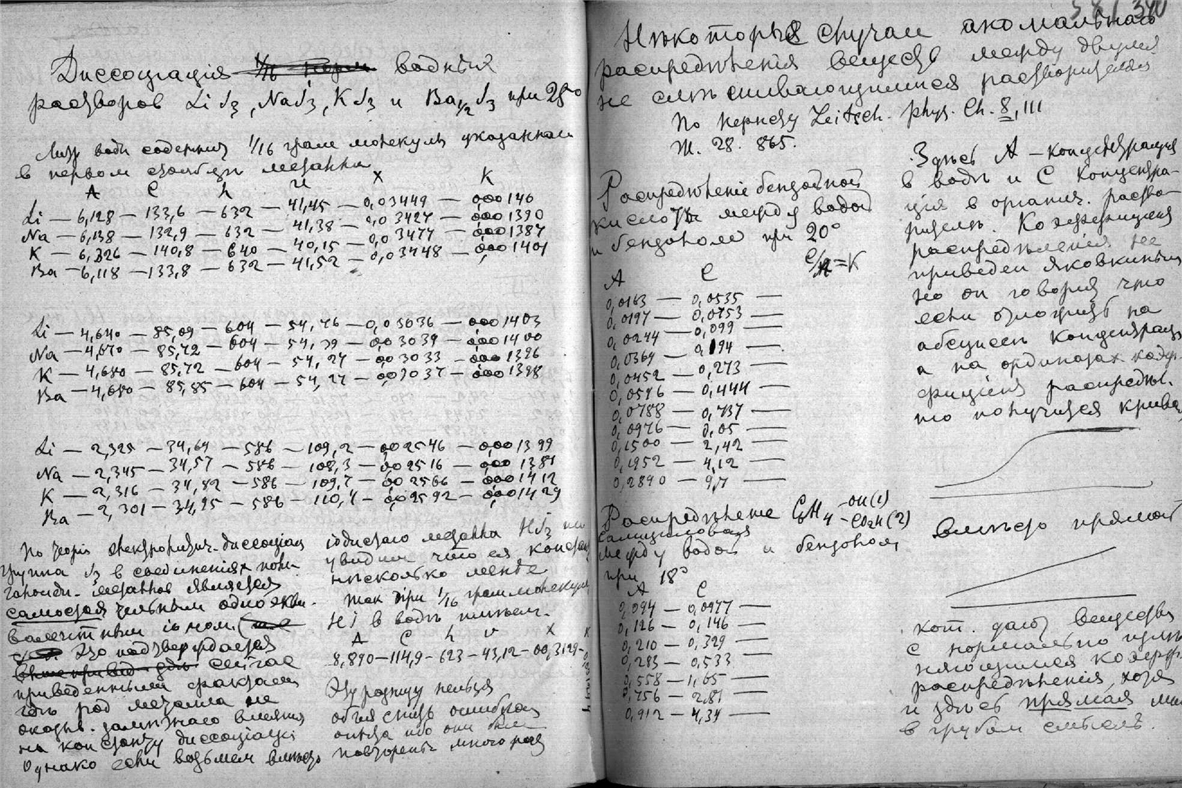 Диссоціація водных
растворов LiJ3, NaJ3, KJ3 и Ba1/2J3 при 25°
Литр воды содержит 1/16 грам молекулы указанном
в первом столбце металла
A C h u X K
Li — 6,128 — 133,6 — 632 — 41,45 — 0,03449 — 0,00140
Na — 6,138 — 132,9 — 632 — 41,38 — 0,03427 — 0,001390
K — 6,326 — 140,8 — 640 — 40,15 — 0,03477 — 0,001387
Ba — 6,118 — 133,8 — 632 — 41,52 — 0,03448 — 0,001401
Li — 4,640 — 85,09 — 604 — 54,46 — 0,03036 — 0,001403
Na — 4,670 — 85,72 — 604 — 54,39 — 0,03039 — 0,001400
K — 4,680 — 85,72 — 604 — 54,27 — 0,03033 — 0,001396
Ba — 4,680 — 85,85 — 604 — 54,27 — 0,03037 — 0,001398
Li — 2,325 — 34,64 — 586 — 109,2 — 0,02546 — 0,001399
Na — 2,345 — 34,57 — 586 — 108,3 — 0,02516 — 0,001381
K — 2,316 — 34,82 — 586 — 109,7 — 0,02566 — 0,001412
Ba — 2,301 — 34,95 — 586 — 110,4 — 0,02592 — 0,001429
По теоріи электролитич. диссоціаціи
группа J3 в соединениях
металлов является
самостоятельным одно экви-
валентным іоном
это подтверждается
сейчас
приведенными фактами
что род металла не
оказыв. замѣтнаго вліянія
на константу диссоціаціи
Однако если возьмем вмѣсто
металла HJ3 то
увидим что ея конст.
нѣсколько менѣе
так при 1/16 грам молекулы
HJ в водѣ имѣем.
A C h v X K
8,890 — 114,9 — 623 — 43,12 — 0,03129
Эту разницу нельзя
объяснить ошибкой
опыта ибо они были
повторены много раз
Нѣкоторые случаи аномальнаго
распредѣленія веществ между двумя
не смѣшивающимися растворителями
По Нернсту Zeitsch. phys. Ch. 8, 111
Ж. 28. 865.
Распредѣленіе бензойной
кислоты между водой
и бензолом при 20°
C/A = K
A C
0,0163 — 0,0535 —
0,0197 — 0,0753 —
0,0244 — 0,099 —
0,0369 — 0,194 —
0,0452 — 0,273 —
0,0596 — 0,444 —
0,0788 — 0,737 —
0,0976 — 1,05 —
0,1500 — 2,42 —
0,1952 — 4,12 —
0,2890 — 9,7 —
Распредѣленіе C6H4 — OH (1) — CO2H (2)
салициловая
между водой и бензолом
при 18°
A C
0,094 — 0,0977 —
0,126 — 0,146 —
0,210 — 0,329 —
0,283 — 0,533 —
0,558 — 1,65 —
0,756 — 2,81 —
0,912 — 4,34 —
Здѣсь A — концентрація
в водѣ и C концентра-
ція в органич. раство-
рителѣ. Коэффиціент
распредѣленія не
приведен Яковкиным
но он говорит что
если отложить на
абсциссѣ концентрац.
а на ординатах коэф-
фиціент распредѣл.
то получится кривая
вмѣсто прямой
кот. дают вещества
с нормально измѣ-
няющимся коэфф.
распредѣленія хотя
и здѣсь прямая
в грубом смыслѣ.